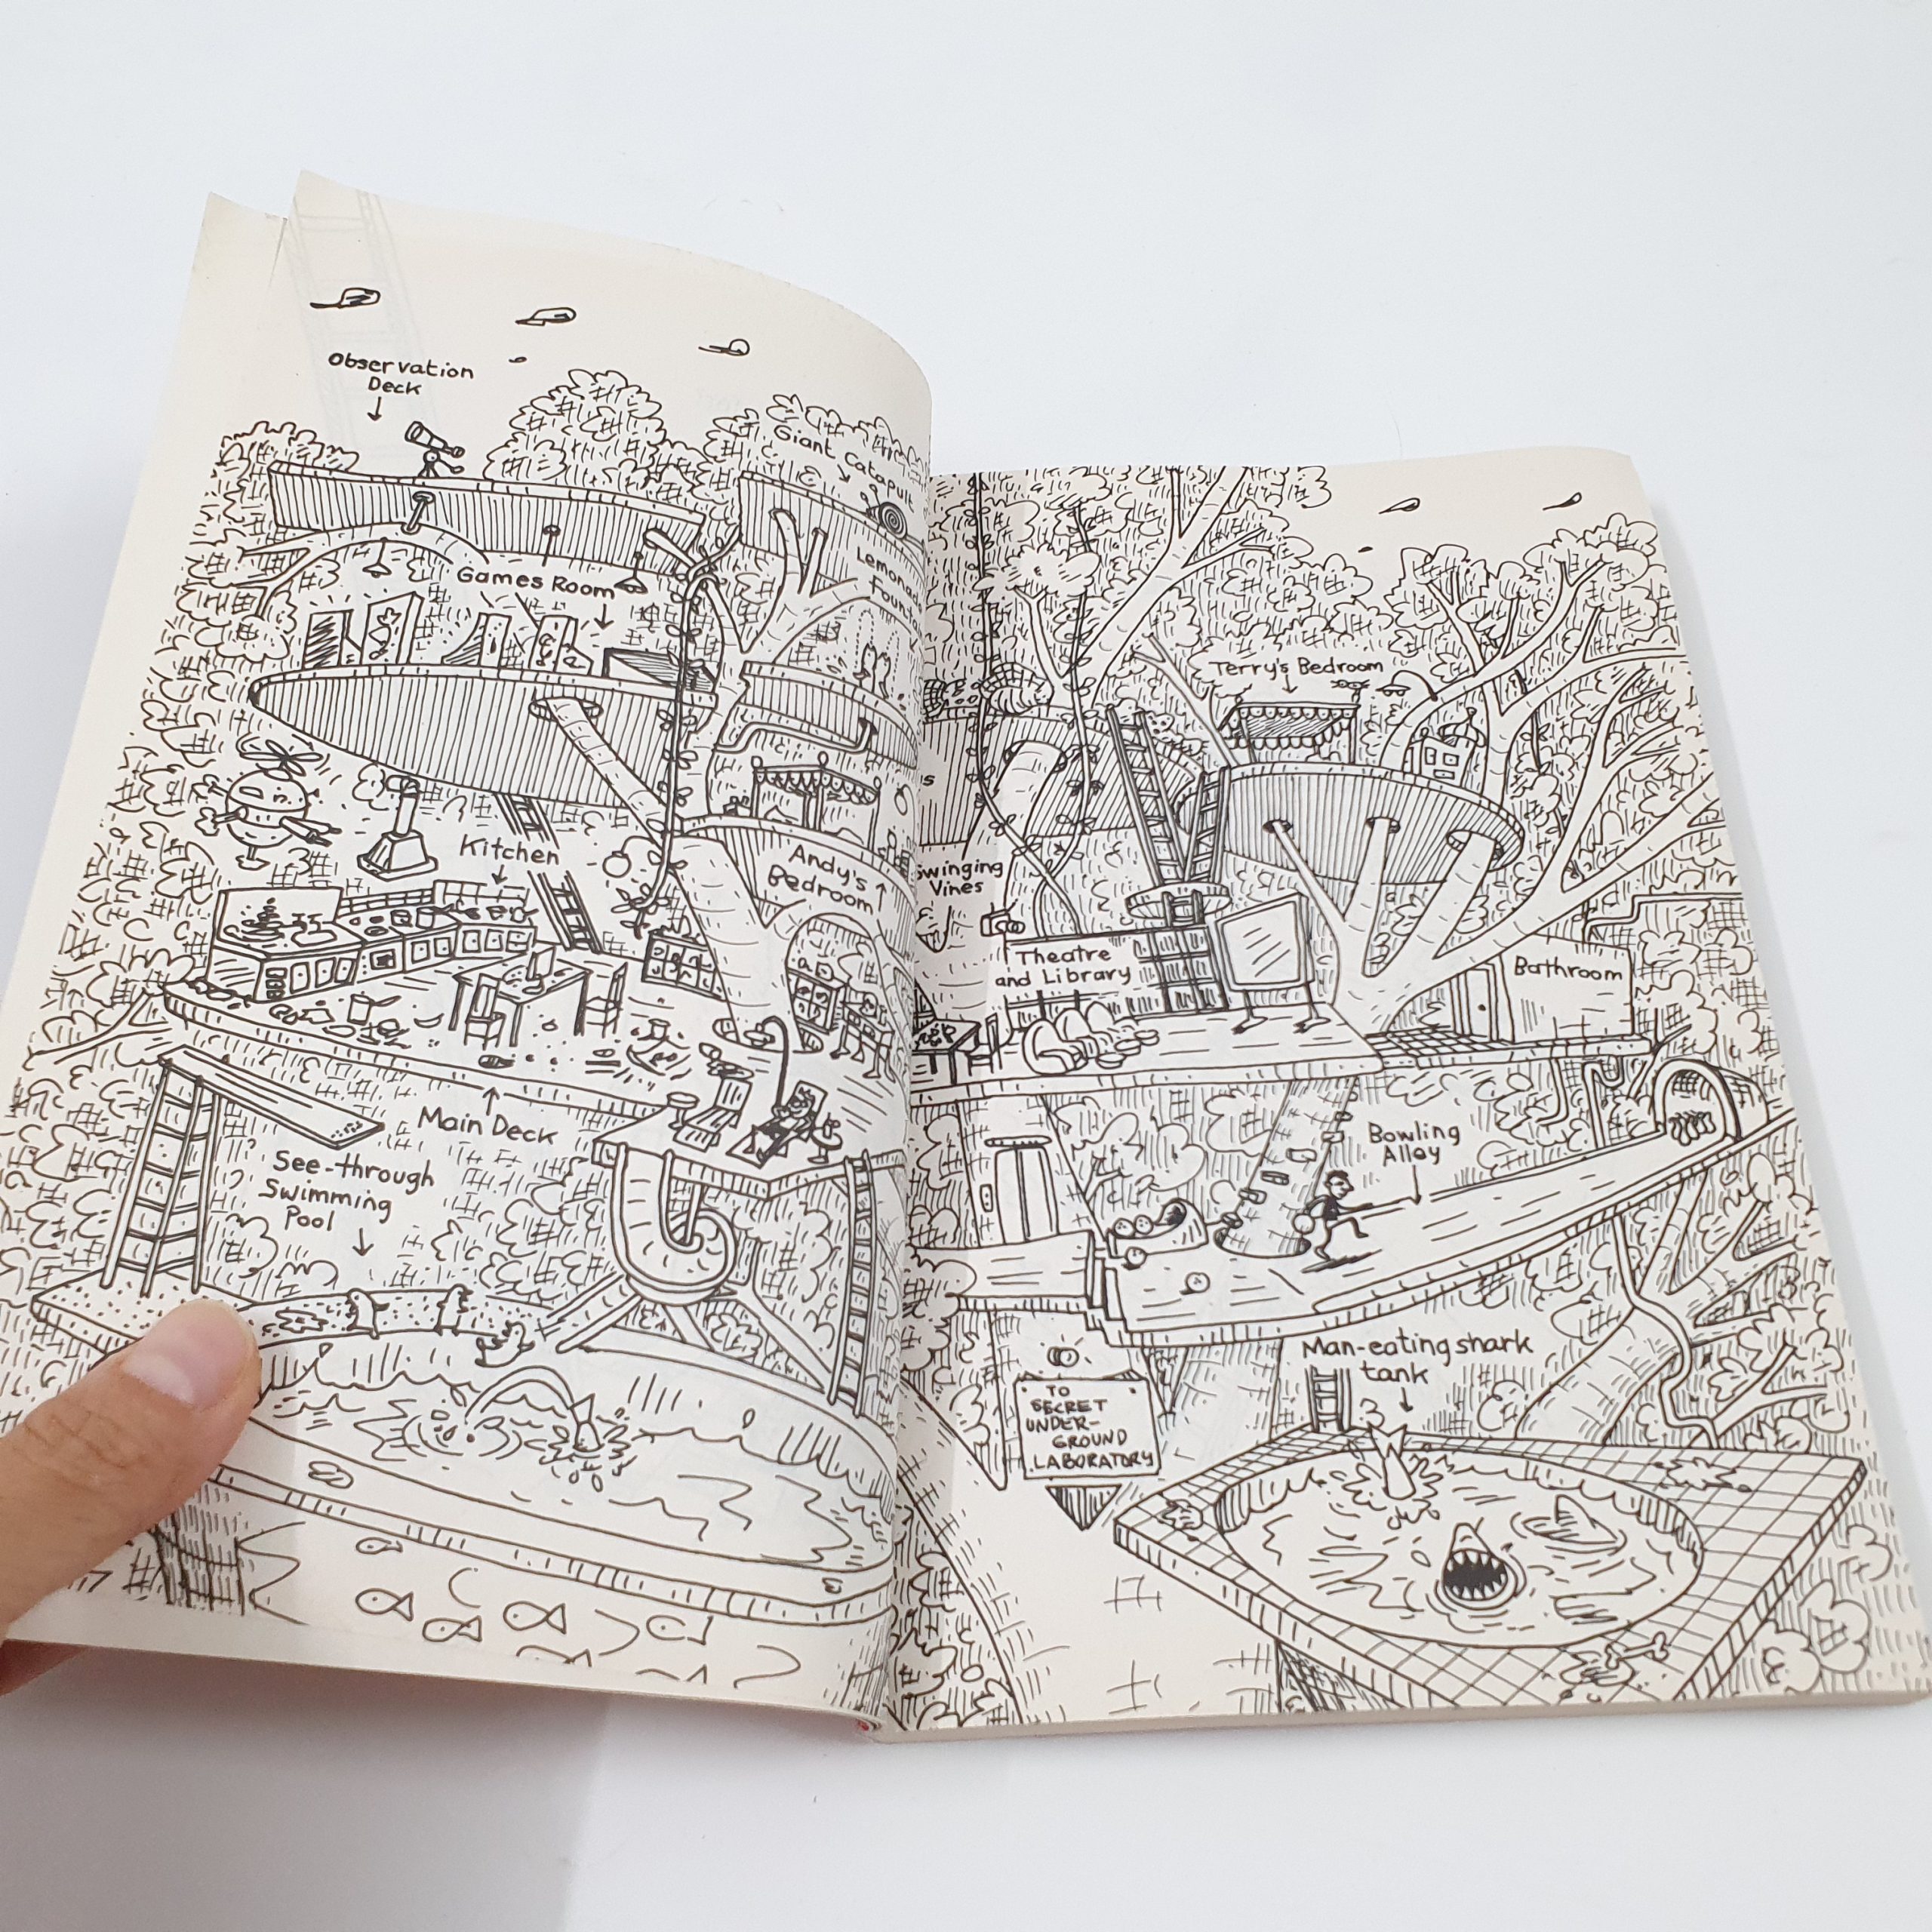 Observation
Deck
Giant Catapult
Lemonade
Games Room
Kitchen
Andy's
Bedroom
Main Deck
See-through
Swimming
Pool
Terry's Bedroom
Swinging
Vines
Theatre
and Library
Bathroom
Bowling
Alley
TO
SECRET
UNDER-
GROUND
LABORATORY
Man-eating shark
tank